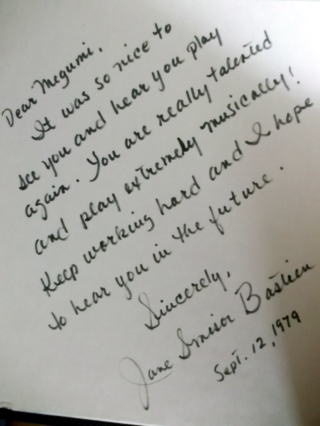 Dear Megumi,
It was so nice to
see you and hear you play
again. You are really talented
and play extremely musically!
Keep working hard and I hope
to hear you in the future.
Sincerely,
Jane Smisor Bastien
Sept. 12, 1979